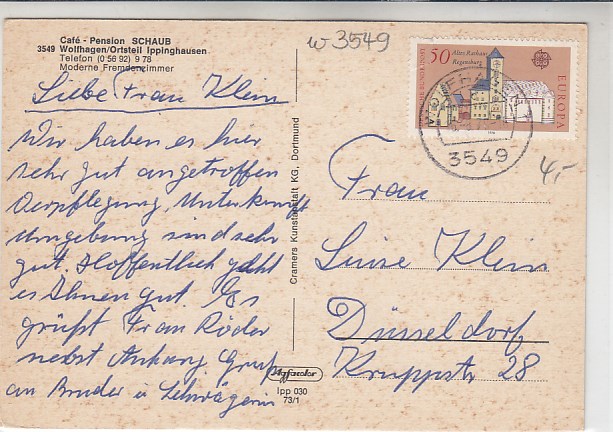 Café - Pension SCHAUB
3549 Wolfhagen/Ortsteil Ippinghausen
Telefon (0 56 92) 9 78
Moderne Fremdenzimmer
Liebe Frau Klein
Wir haben es hier
sehr gut angetroffen
Verpflegung, Unterkunft
Umgebung sind sehr
gut. Hoffentlich geht
es Ihnen gut. Es
grüßt Frau Röder
nebst Anhang. Gruß
an Bruder u Schwägerin
Cramers Kunstanstalt KG, Dortmund
Agfacolor
Ipp 030
73/1
w 3549
50 Altes Rathaus
Regensburg
EUROPA
3549
4,-
Frau
Luise Klein
Düsseldorf
Kruppstr 28